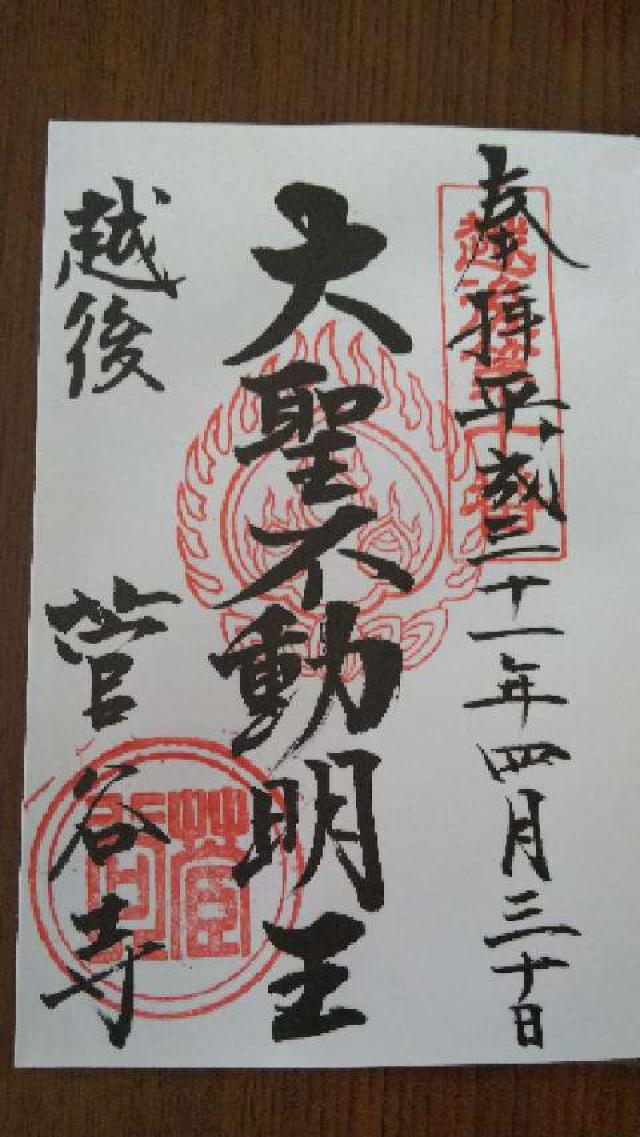 奉拝平成三十一年四月三十日
大聖不動明王
越後 菅谷寺